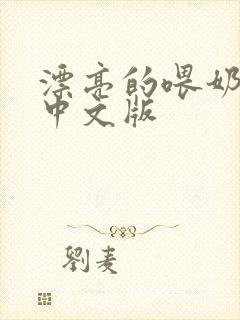 漂亮的喂奶
中文版
劉麦